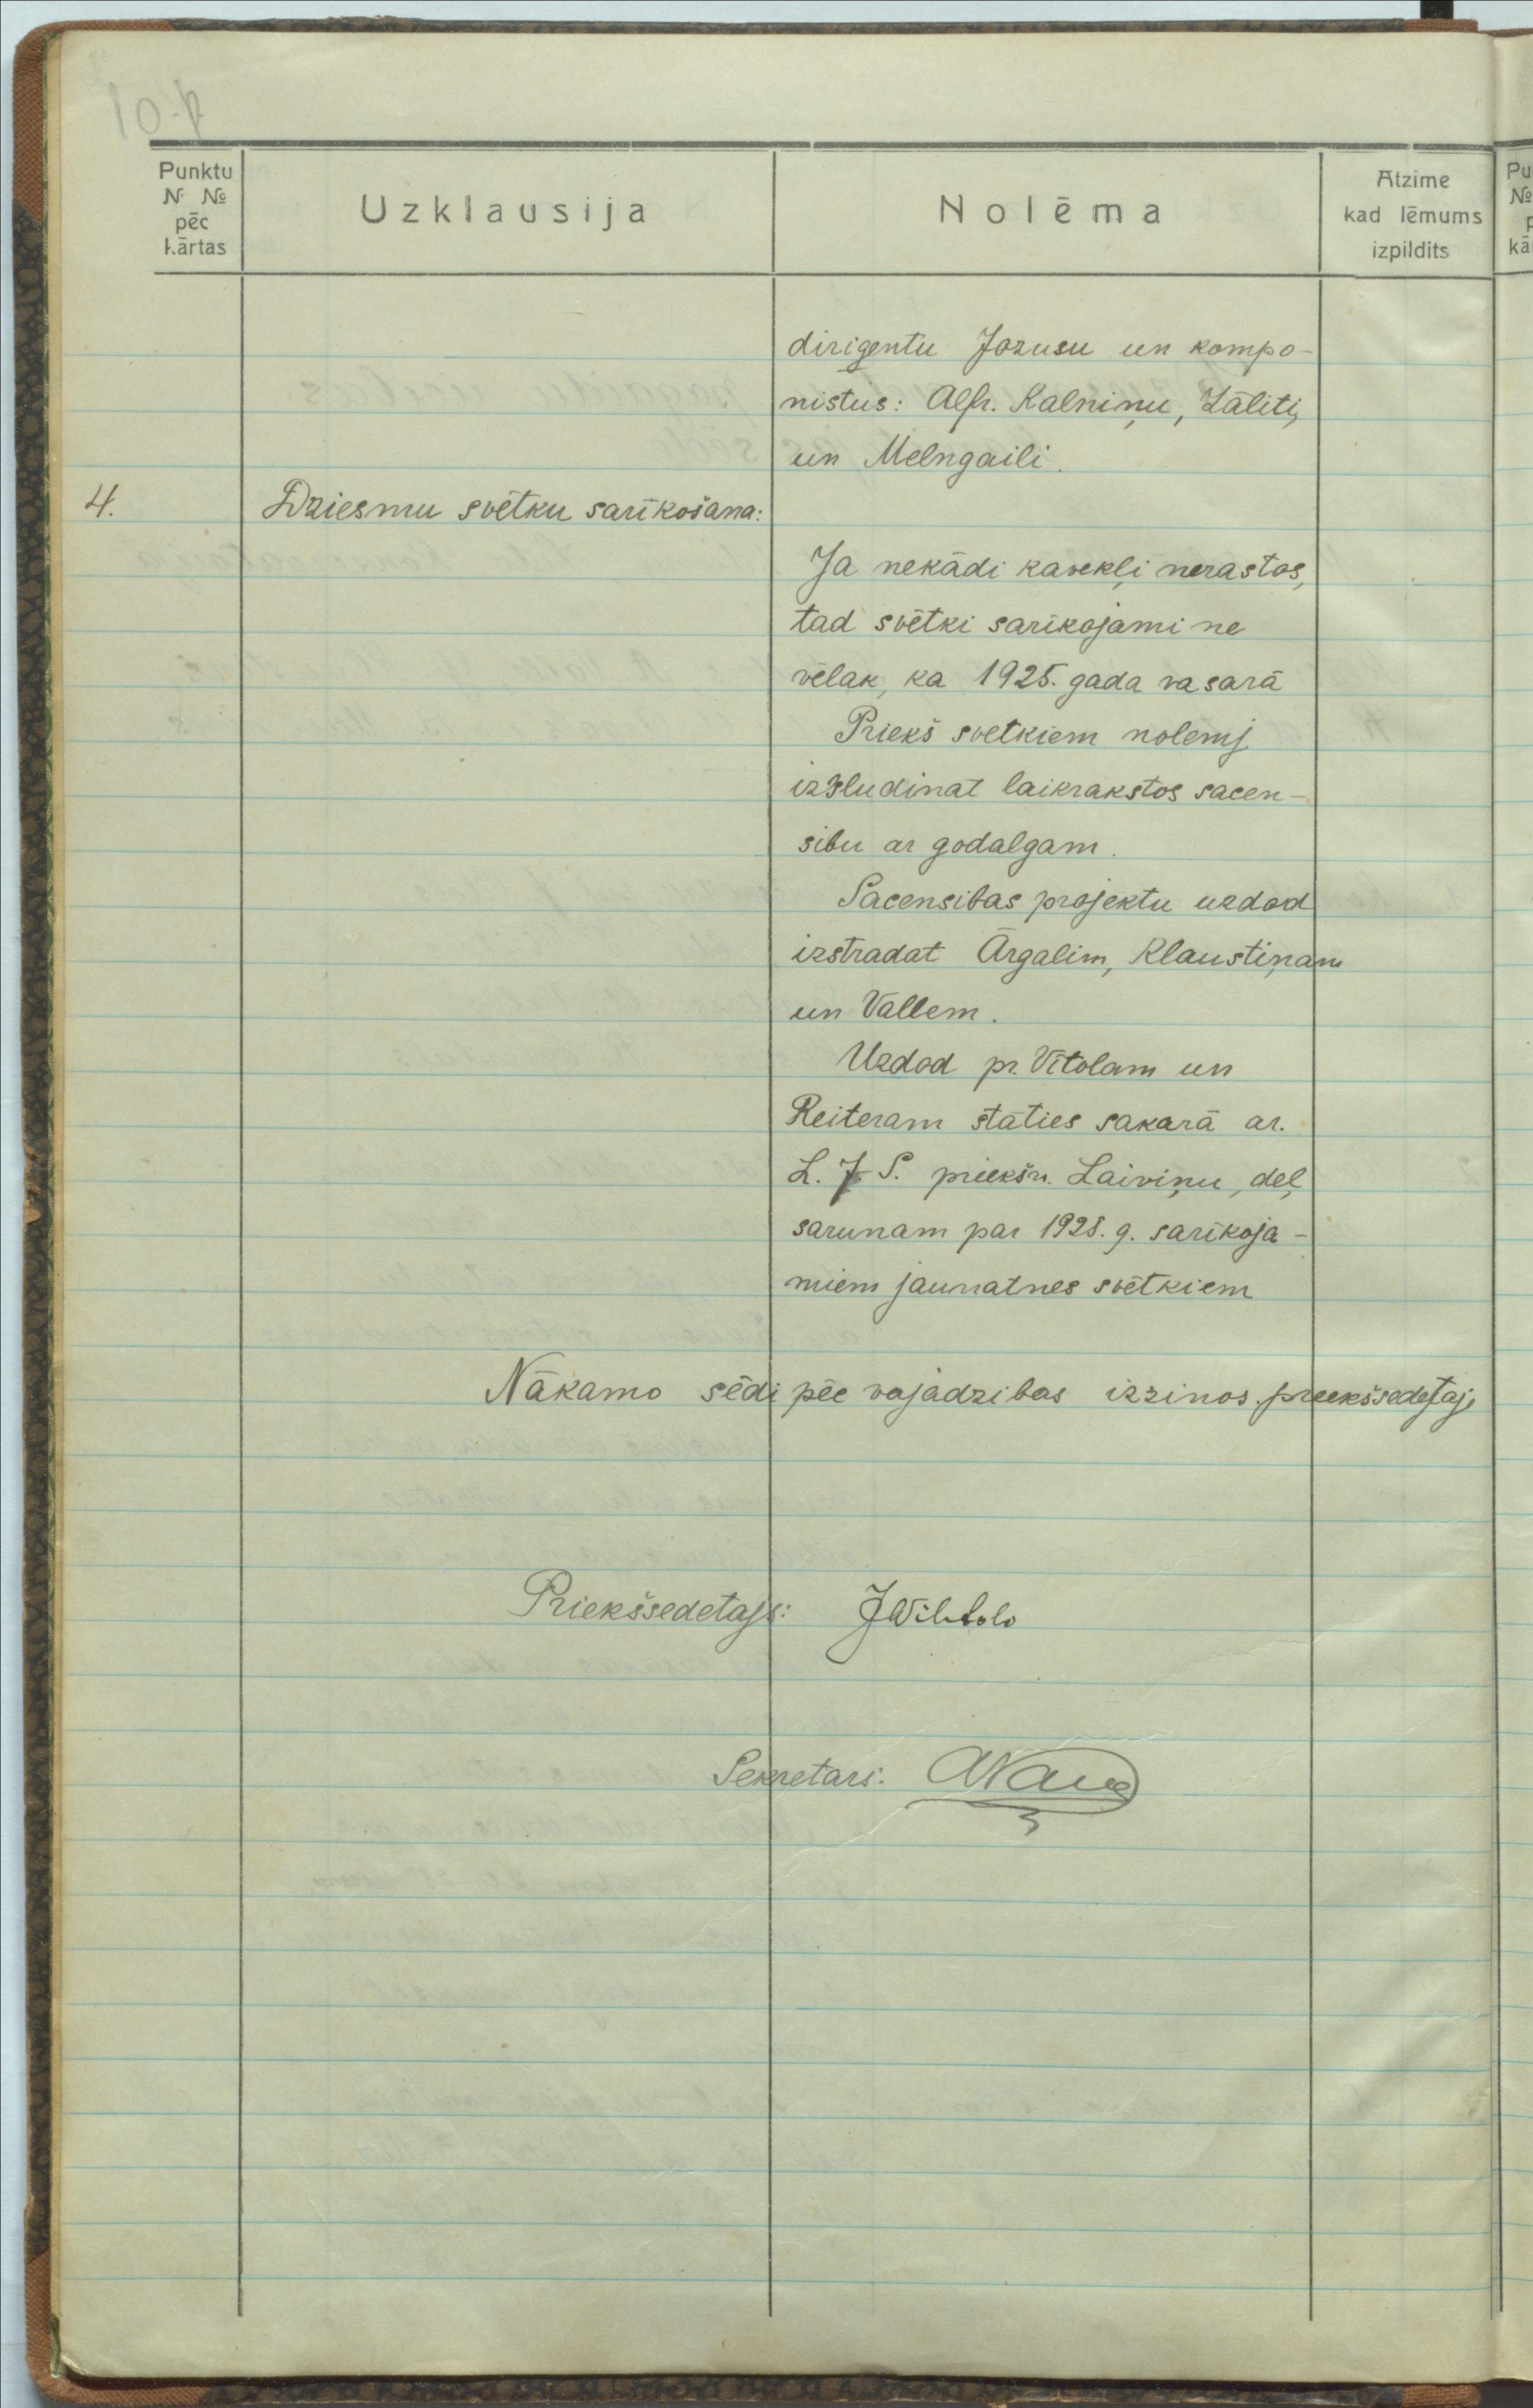 Punktu
N №
pēc
kārtas
Uzklausija
Nolēma
Atzime
kad lēmums
izpildits
dirigentu Jozusu un kompo-
nistus: Alfr. Kalniņu, Zāliti,
un Melngaili.
4.
Dziesmu svētku sarīkošana:
Ja nekādi kavekļi nerastos,
tad svētki sarīkojami ne
vēlak, ka 1925. gada vasarā
Priekš svetkiem nolemj
izsludināt laikrakstos sacen-
sibu ar godalgam.
Sacensibas projektu uzdod
izstradat Ārgalim, Klaustiņam
un Vallem.
Uzdod pr. Vītolam un
Reiteram stāties sakarā ar.
L. J. S. priekšn. Laiviņu, deļ
sarunam par 1928. g. sarīkoja-
miem jaunatnes svētkiem
Nākamo sēdi pēc vajadzibas izzinos priekšsedetajs
Priekšsedetajs: JWihtols
Sekretars:
Pu
№
p
kā